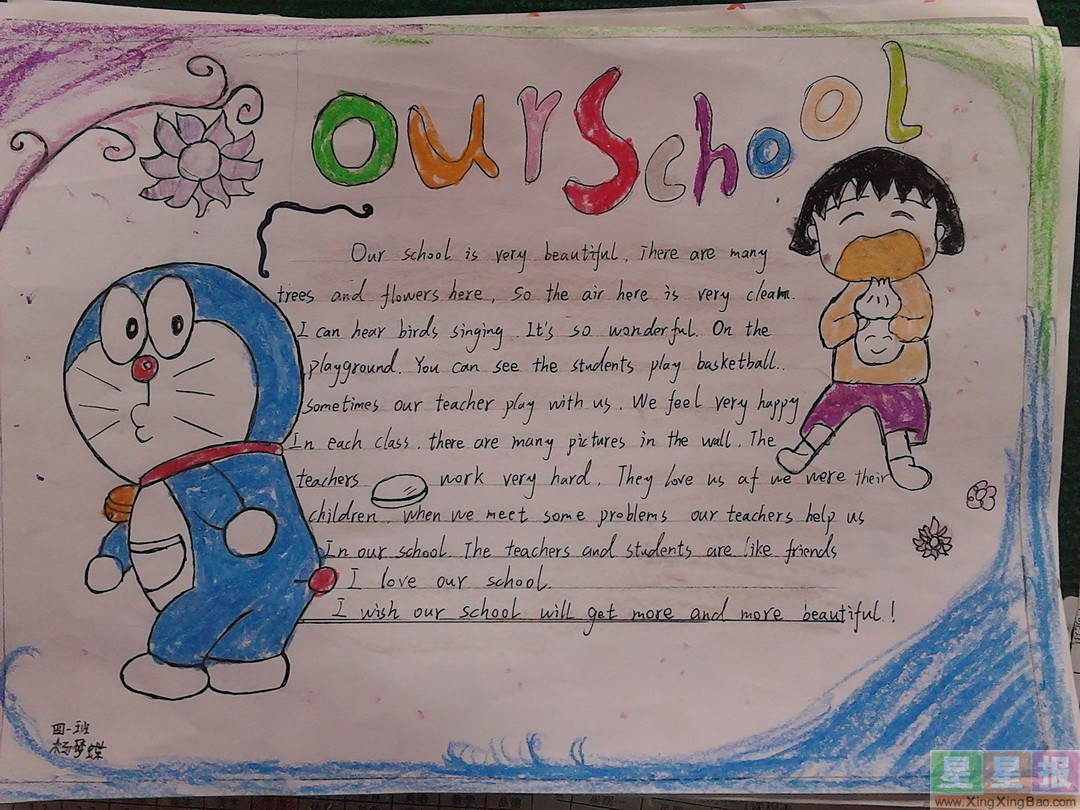 OUR School
Our school is very beautiful. There are many
trees and flowers here, So the air here is very clean.
I can hear birds singing. It's so wonderful. On the
playground. You can see the students play basketball..
sometimes our teacher play with us. We feel very happy
In each class. there are many pictures in the wall. The
teachers work very hard. They love us af we were their
children. when we meet some problems our teachers help us
In our school. The teachers and students are like friends
I love our school.
I wish our school will get more and more beautiful!
四一班
杨梦蝶
星星报
www.XingXingBao.com